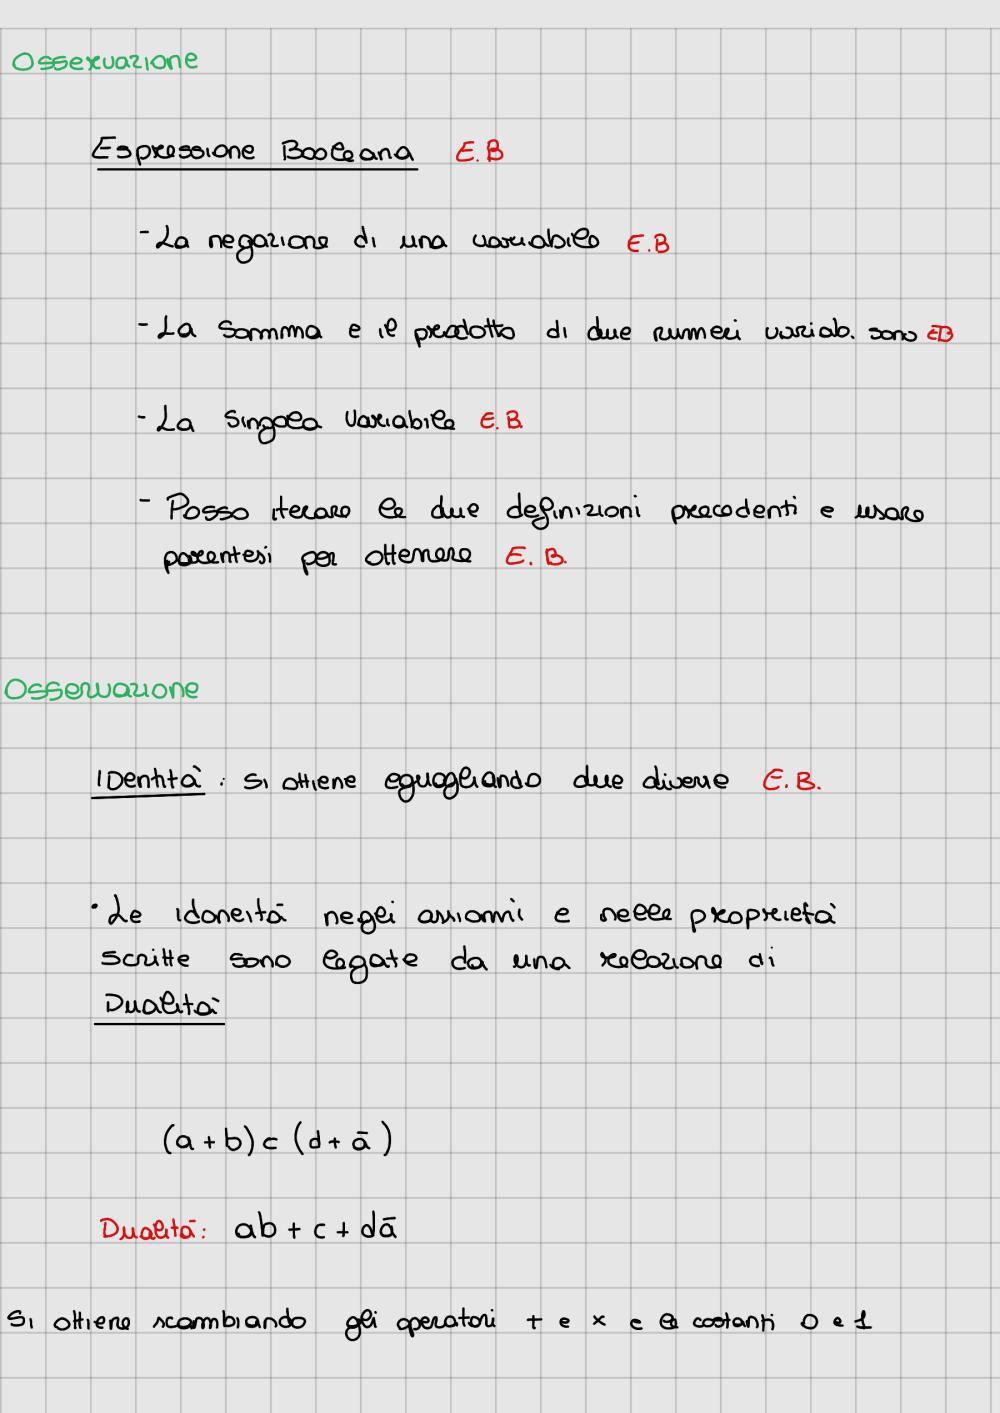 Osservazione
Espressione Booleana E.B
- La negazione di una variabile E.B
- La somma e il prodotto di due numeri variab. sono EB
- La singola variabile E.B
- Posso iterare le due definizioni precedenti e usare
parentesi per ottenere E.B.
Osservazione
IDentità : si ottiene eguagliando due diverse E.B.
• Le idoneità negli assiomi e nelle proprietà
scritte sono legate da una relazione di
Dualità
(a + b) c (d + ā)
Dualità: ab + c + dā
Si ottiene scambiando gli operatori + e × e le costanti 0 e 1